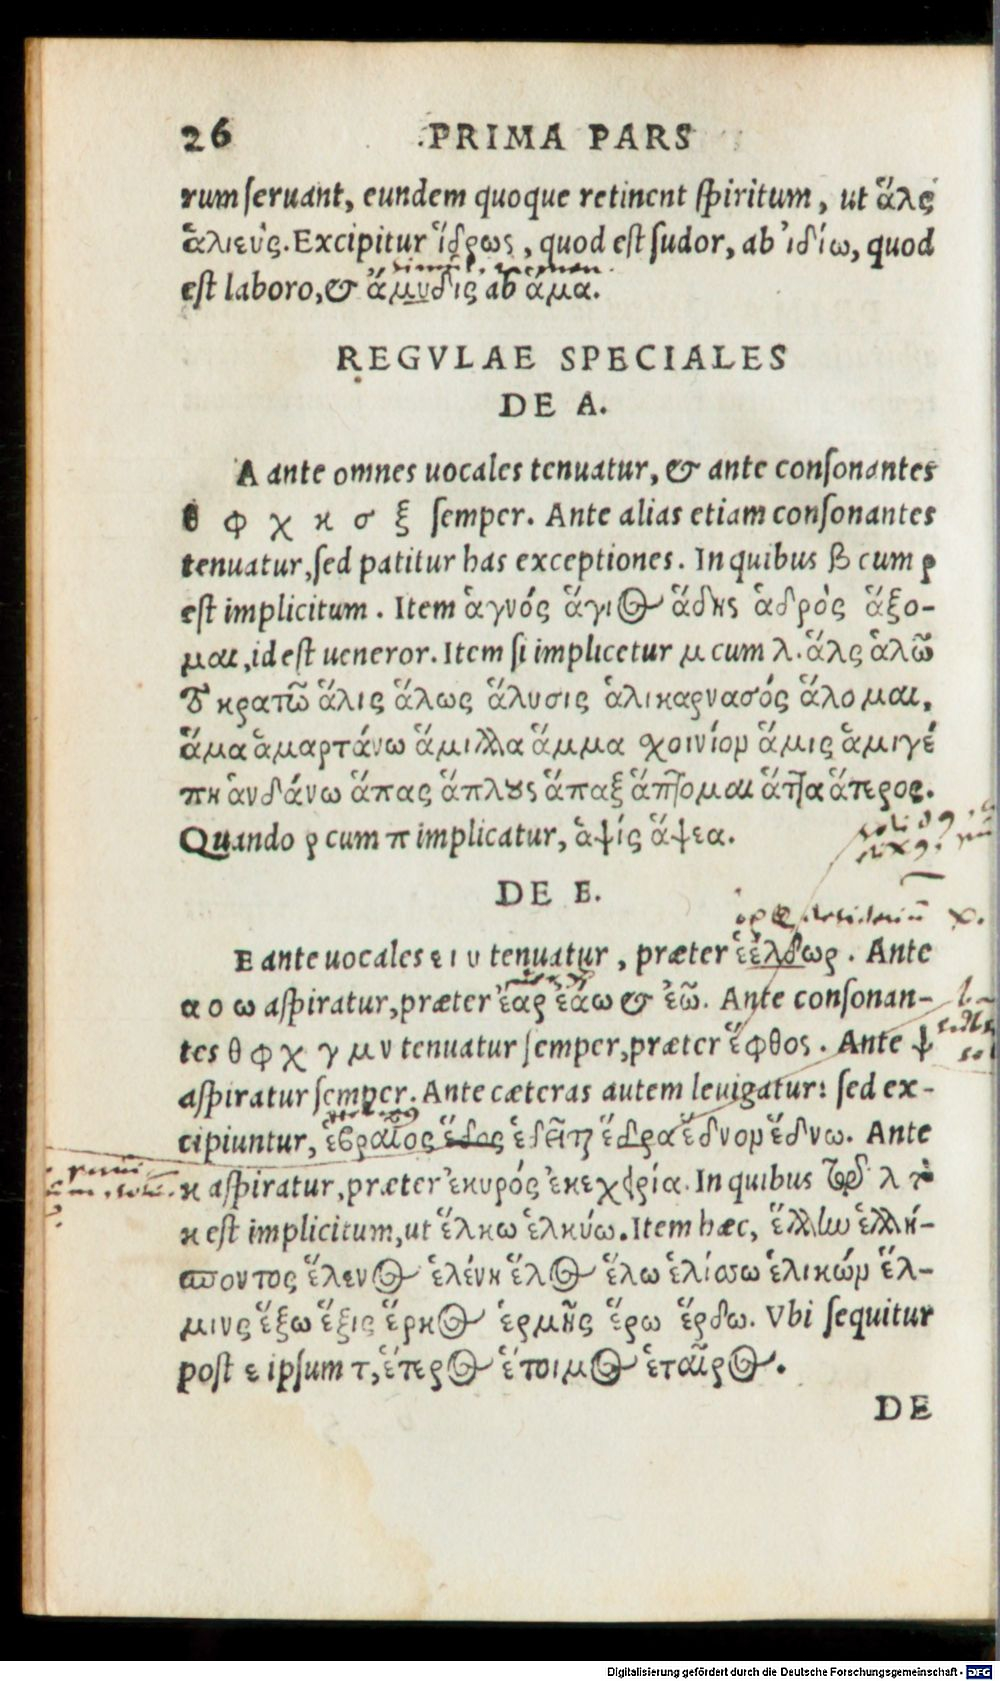 26 PRIMA PARS
rum seruant, eundem quoque retinent spiritum, ut ἅλς
ἁλιεύς. Excipitur ἵδρως, quod est sudor, ab ἰδίω, quod
est laboro, & ἄμυδις ab ἅμα.
REGVLAE SPECIALES
DE A.
A ante omnes uocales tenuatur, & ante consonantes
θ φ χ κ σ ξ semper. Ante alias etiam consonantes
tenuatur, sed patitur has exceptiones. In quibus β cum ρ
est implicitum. Item ἁγνός ἅγιος ἅδης ἁδρὸς ἅζο-
μαι, id est ueneror. Item si implicetur μ cum λ. ἅλς ἁλῶ
τὸ κρατῶ ἅλις ἅλως ἅλυσις ἁλικαρνασός ἅλομαι,
ἅμα ἁμαρτάνω ἅμιλλα ἅμμα σχοινίον ἅμις ἁμιγέ
πη ἁνδάνω ἅπας ἅπλους ἅπαξ ἅπτομαι ἅττα ἅτερος.
Quando ρ cum π implicatur, ἁψίς ἅψεα.
DE E.
E ante uocales ε ι υ tenuatur, præter ἑέλδωρ. Ante
α ο ω aspiratur, præter ἔαρ ἐάω & ἐῶ. Ante consonan-
tes θ φ χ γ μ ν tenuatur semper, præter ἕφθος. Ante ψ
aspiratur semper. Ante cæteras autem leuigatur: sed ex-
cipiuntur, ἑβραῖος ἕδος ἑδεῖται ἕδρα ἕδνον ἕδνω. Ante
κ aspiratur, præter ἐκυρός ἐκεχειρία. In quibus λ τῷ
κ est implicitum, ut ἕλκω ἑλκύω. Item hæc, ἕλλην ἑλλή-
σποντος ἕλενος ἑλένη ἕλος ἕλω ἑλίσσω ἑλικών ἕλ-
μινς ἕξω ἕξις ἕρκος ἑρμῆς ἕρω ἕρδω. Vbi sequitur
post ε ipsum τ, ἕτερος ἕτοιμος ἑταῖρος.
DE
Digitalisierung gefördert durch die Deutsche Forschungsgemeinschaft - DFG